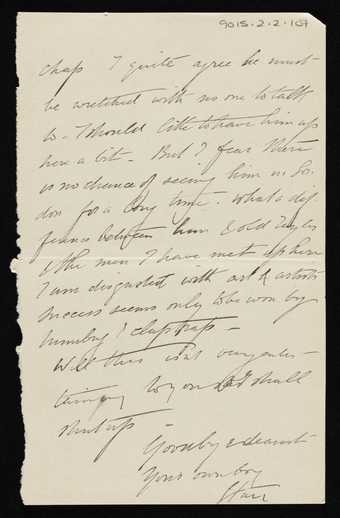 9015.2.2.107
chap I quite agree he must
be wretched with no one to talk
to - I should like to have him up
here a bit - But I fear there
is no chance of seeing him in Lon
don for a long time. What a dif
ference between him & old
& the men I have met up here
I am disgusted with art & artists
success seems only to be won by
humbug & claptrap -
Well this isnt very enter -
taining to you so I shall
shut up -
Goodbye dearest
Your own boy
Harr